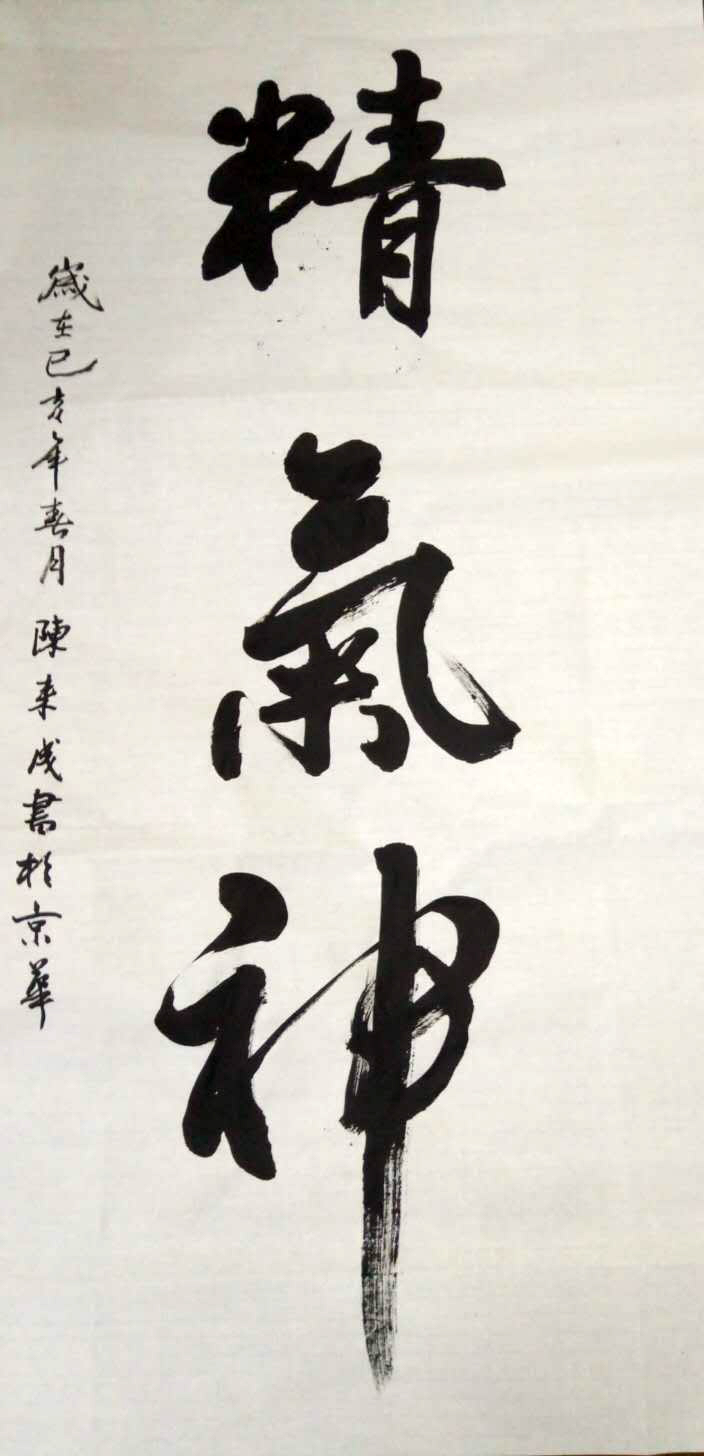 精氣神
歲在己亥年春月陳來成書於京華